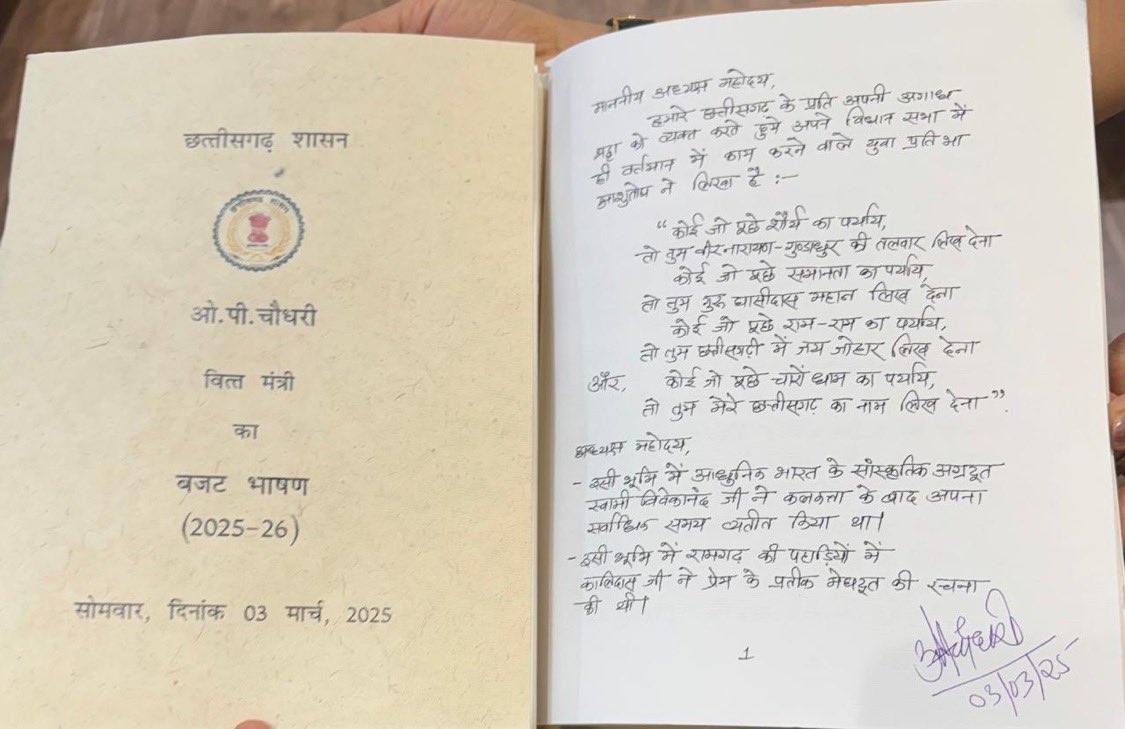 छत्तीसगढ़ शासन
ओ.पी.चौधरी
वित्त मंत्री
का
बजट भाषण
(2025-26)
सोमवार, दिनांक 03 मार्च, 2025
माननीय अध्यक्ष महोदय,
हमारे छत्तीसगढ़ के प्रति अपनी अगाध
श्रद्धा को व्यक्त करते हुये अपने विधान सभा में
ही वर्तमान में काम करने वाले युवा प्रतिभा
आशुतोष ने लिखा है :-
“कोई जो पूछे शौर्य का पर्याय,
तो तुम वीरनारायण-गुण्डाधुर की तलवार लिख देना
कोई जो पूछे समानता का पर्याय,
तो तुम गुरु घासीदास महान लिख देना
कोई जो पूछे राम-राम का पर्याय,
तो तुम छत्तीसगढ़ी में जय जोहार लिख देना
और, कोई जो पूछे चारों धाम का पर्याय,
तो तुम मेरे छत्तीसगढ़ का नाम लिख देना”.
अध्यक्ष महोदय,
- इसी भूमि में आधुनिक भारत के सांस्कृतिक अग्रदूत
स्वामी विवेकानंद जी ने कलकत्ता के बाद अपना
सर्वाधिक समय व्यतीत किया था।
- इसी भूमि में रामगढ़ की पहाड़ियों में
कालिदास जी ने प्रेम के प्रतीक मेघदूत की रचना
की थी।
1
03/03/25